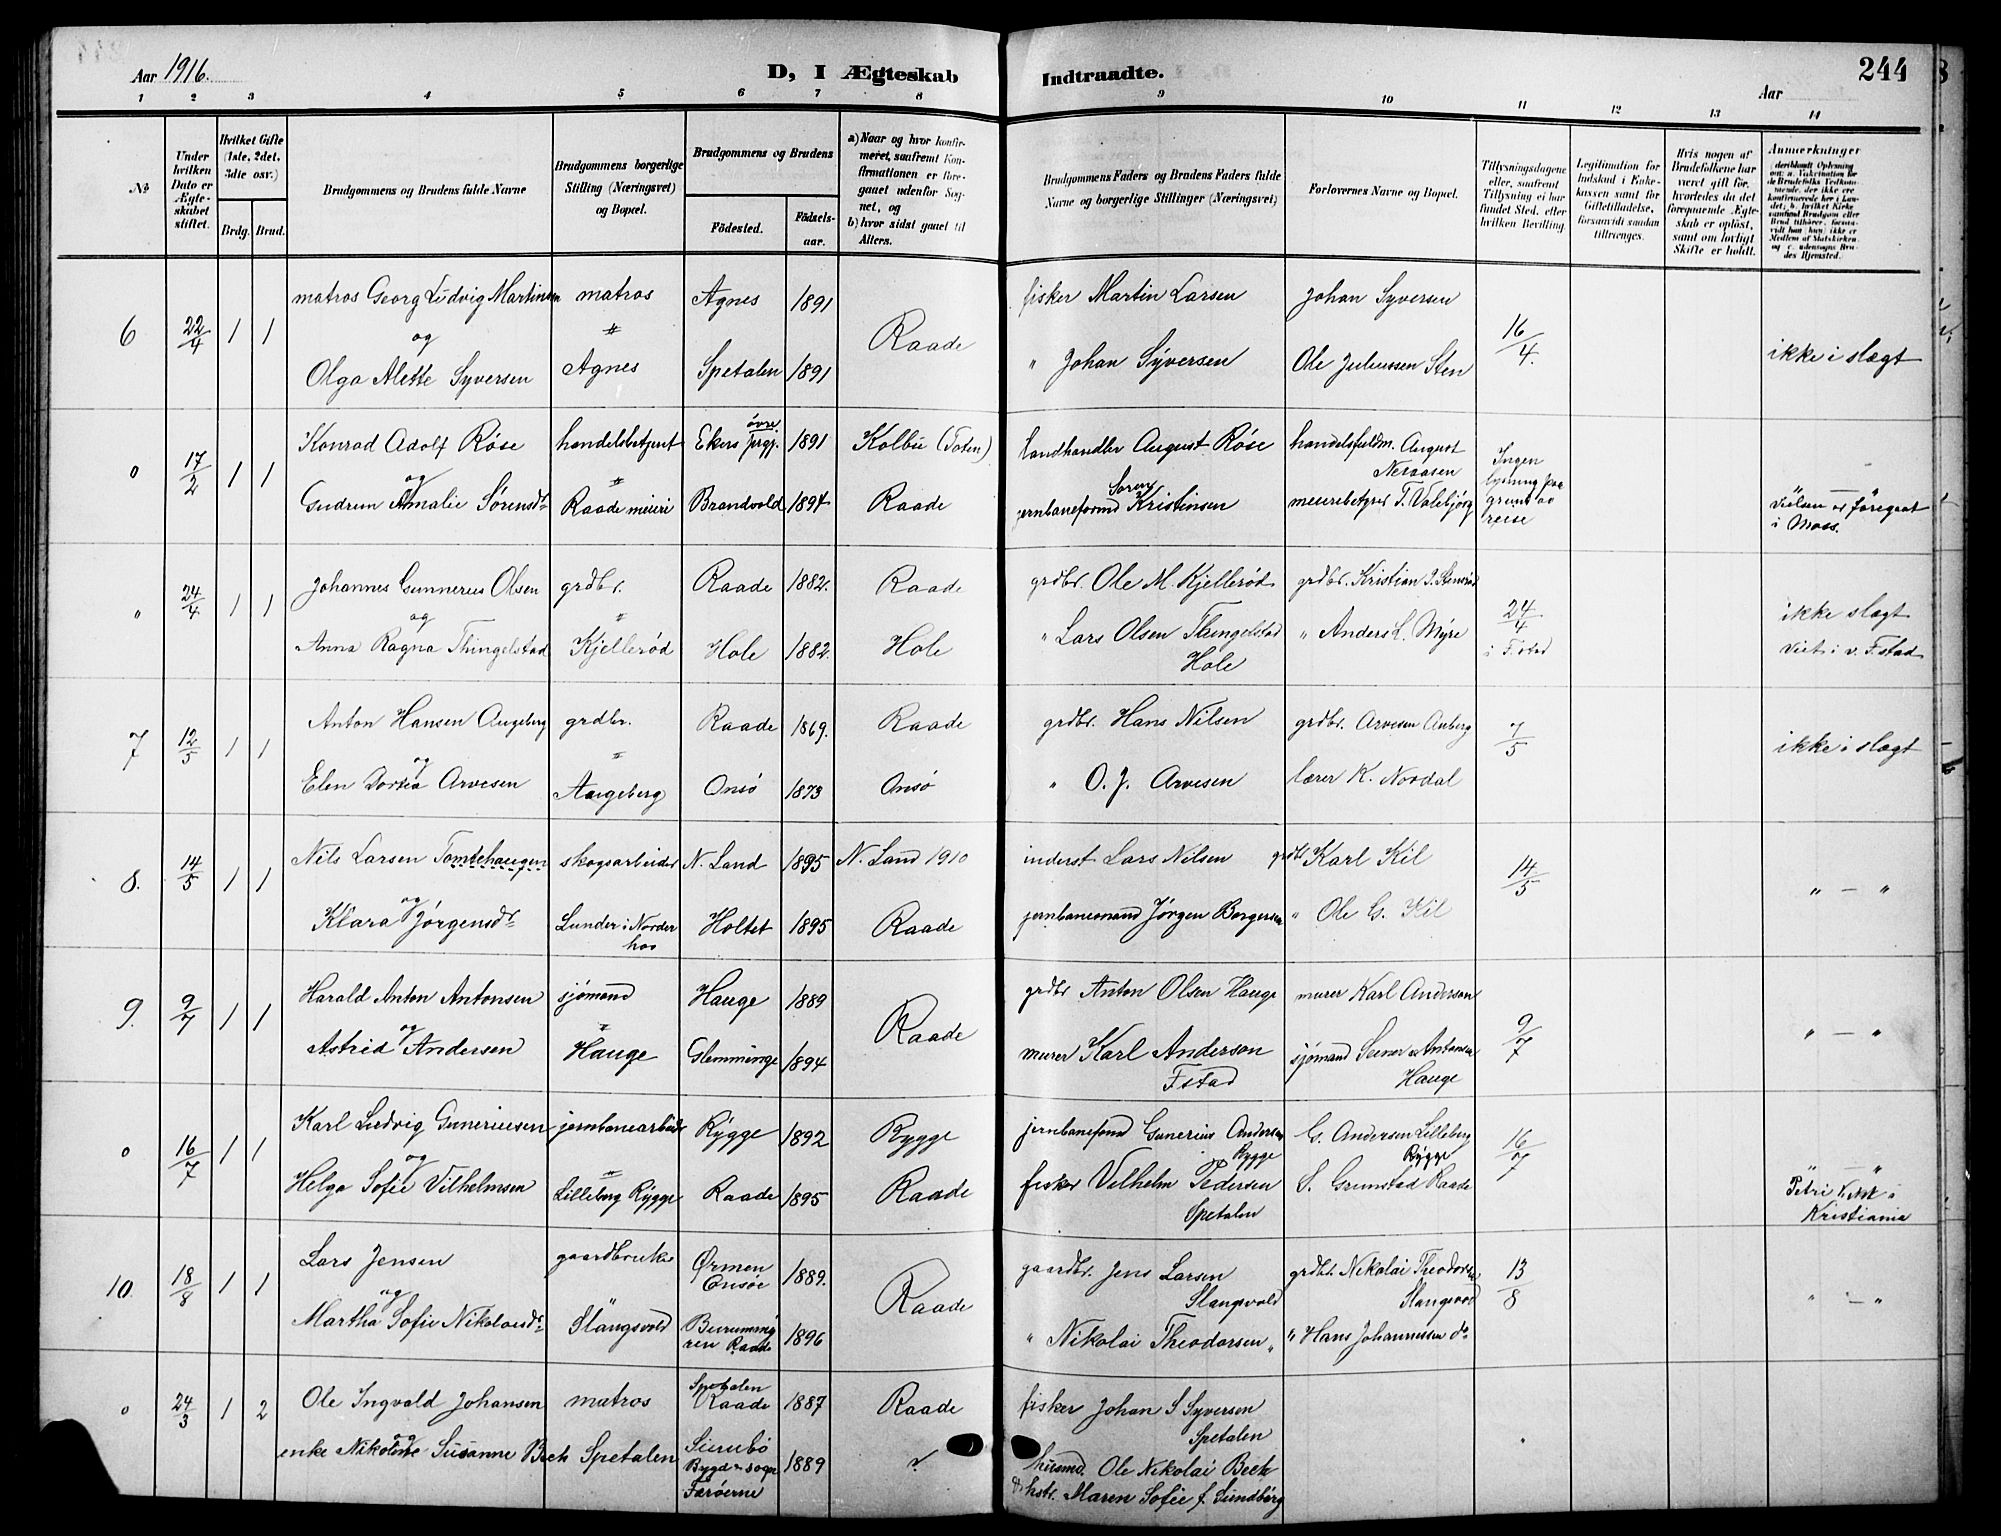 Aar 1916.
D, I Ægteskab Indtraadte.
Aar
244
1 2 3 4 5 6 7 8 9 10 11 12 13 14
No
Under hvilken Dato er Ægteskabet stiftet.
Hvilket Gifte (1ste, 2det, 3die osv.)
Brdg. Brud.
Brudgommens og Brudens fulde Navne
Brudgommens borgerlige Stilling (Næringsvei) og Bopæl.
Brudgommens og Brudens
Födested.
Födsels-aar.
a) Naar og hvor konfirmeret, saafremt Konfirmationen er foregaaet udenfor Sognet, og
b) hvor sidst gaaet til Alters.
Brudgommens Faders og Brudens Faders fulde Navne og borgerlige Stillinger (Næringsvei)
Forlovernes Navne og Bopæl.
Tillysningsdagene eller, saafremt Tillysning ei har fundet Sted, efter hvilken Bevilling.
Legitimation for Indskud i Enkekassen samt for Giftetilladelse, forsaavidt saadan tiltrænges.
Hvis nogen af Brudefolkene har været gift før, hvorledes da det foregaaende Ægteskab er oplöst, samt om lovligt Skifte er holdt.
Anmærkninger
6 22/4 1 1
matros Georg Ludvig Martinsen
og
Olga Alette Syversen
matros
"
Agnes
Agnes 1891
Spetalen 1891
Raade
fisker Martin Larsen
" Johan Syversen
Johan Syversen
Ole Juliussen Sten
16/4.
ikke i slægt
0 17/2 1 1
Konrad Adolf Røse
og
Gudrun Amalie Sørensdr
handelsbetjent
"
Raade meieri
Ekers øvre prgj. 1891
Brandvold 1894
Kolbu (Toten)
Raade
Landhandler August Røse
jernbaneformd Soren Kristinsen
handelsfuldm. August Neraasen
meieribestyrer T. Valebjørg
Ingen lysning paa grund av reise
" — "
Vielsen er foregaat i Moss.
" 24/4 1 1
Johannes Gunnerius Olsen
og
Anna Ragna Thingelstad
grdbr.
"
Kjellerød
Raade 1882.
Hole 1882.
Raade
Hole
grdbr. Ole M. Kjellerød
" Lars Olsen Thingelstad
Hole
grdbr. Kristian J. Stensrød
" Anders L. Myre
24/4
i Fstad
ikke slægt
Viet i v. Fstad
7 12/5 1 1
Anton Hansen Augeberg
og
Elen Dortea Arvesen
grdbr.
"
Augeberg
Raade 1869.
Onsø 1873
Raade
Onsø
grdbr. Hans Nilsen
" O. J. Arvesen
grdbr. Arvesen Auberg
lærer K. Nordal
7/5
ikke i slægt
8. 14/5 1 1
Nils Larsen Tomtehaugen
og
Klara Jørgensdr
skogsarbeider
Lunder i Norderhov
N. Land 1895
Holtet 1895
N. Land 1910
Raade
inderst Lars Nilsen
jernbanemand Jørgen Borgersen
grdbr Karl Kil
" Ole G. Kil
14/5
" — "
9. 9/7 1 1
Harald Anton Antonsen
og
Astrid Andersen
sjømand
"
Hauge
Hauge 1889
Glemminge 1894
Raade
grdbr Anton Olsen Hauge
murer Karl Anderson
Fstad
murer Karl Anderson
sjømand Antonsen
Hauge
9/7
" — "
0 16/7 1 1
Karl Ludvig Guneriusen
og
Helga Sofie Vilhelmsen
jernbanearbeider
"
Lilleberg Rygge
Rygge 1892
Raade 1895
Rygge
Raade
jernbaneformd Gunerius Andersen
Rygge
fisker Vilhelm Pedersen
Spetalen
G. Andersen Lilleberg
Rygge
S. Grimstad Raade
16/7
" — "
Petri Kirke i
Kristiania
10. 18/8 1 1
Lars Jensen
og
Martha Sofie Nikolaisdr
gaardbruker
Slangsvold
Ørmen
Onsøe 1889.
Burummyren Raade 1896
Raade
gaardbr. Jens Larsen
Slangsvold
" Nikolai Theodorsen "
grdbr. Nikolai Theodorsen
Slangsvold
" Hans Johannessen do
13/8
" — "
0 24/3 1 2
Ole Ingvald Johansen
og
enke Nikoline Susanne Bech
matros
Spetalen
Spetalen
Raade 1887
Sumbø
Bygd & sogn
Færøerne 1889
Raade
?
fisker Johan S Syversen
Spetalen
husmd. Ole Nikolai Bech
& hstr. Maren Sofie f. Sundberg